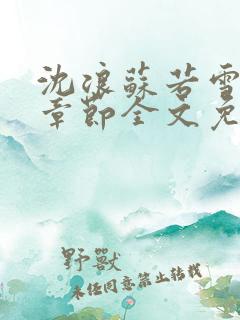 沈浪蘇若雪
章節全文免
野獸
未经同意禁止转载